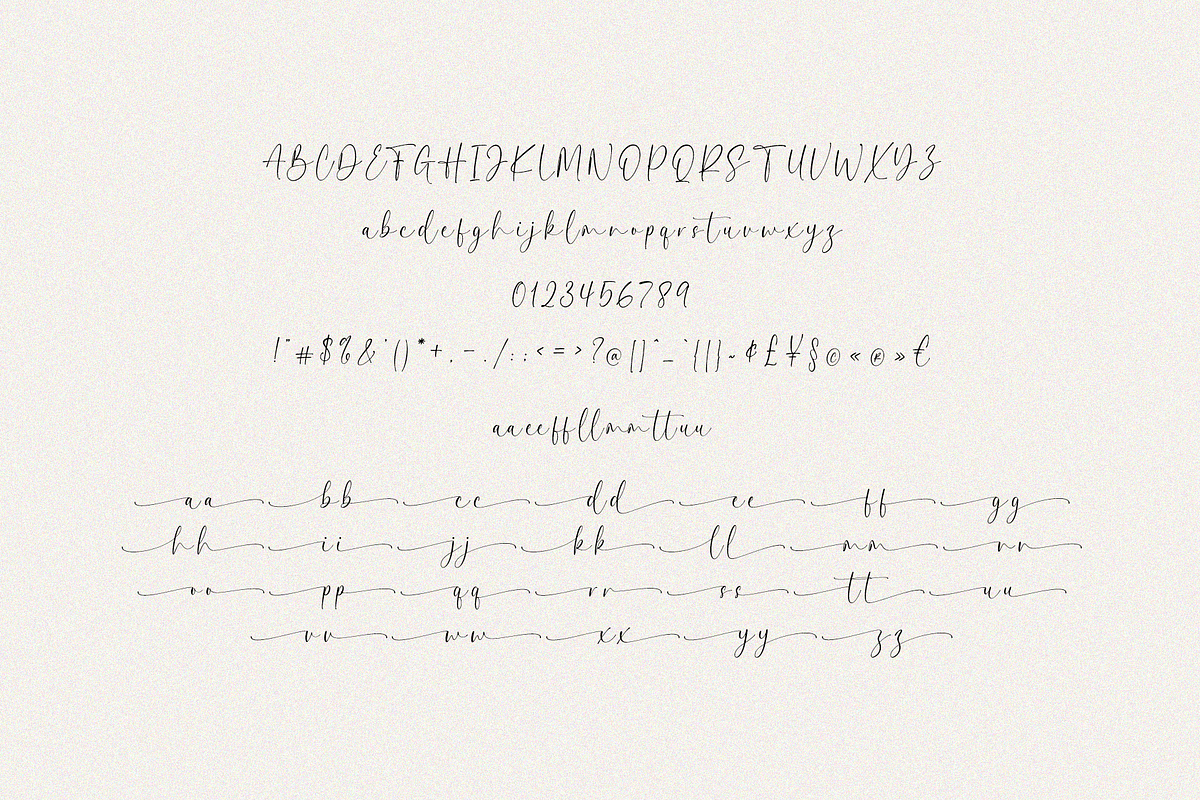 ABCDEFGHIJKLMNOPQRSTUVWXYZ
abcdefghijklmnopqrstuvwxyz
0123456789
!"#$%&'()*+,-./:;<=>?@[\]^_`{|}~¢£¥§©«®»€
aaeeffllmmttuu
aa bb cc dd ee ff gg
hh ii jj kk ll mm nn
oo pp qq rr ss tt uu
vv ww xx yy zz